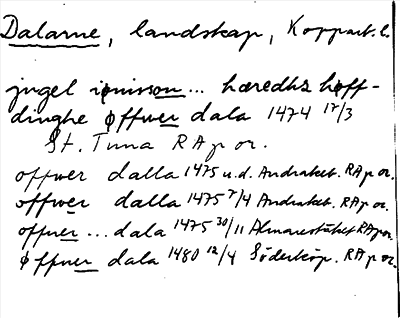 Dalarne, landskap, Kopparb. l.
jngel iønisson... hæredhz høff-
dinghe øffwer dala 1474 17/3
St. Tuna RAp or.
offwer dalla 1475 u.d. Andraket. RAp or.
offwer dalla 1475 7/4 Andraket. RAp or.
offuer ... dala 1475 30/11 Almarestäket RAp or.
øffuer dala 1480 12/4 Söderköp. RAp or.